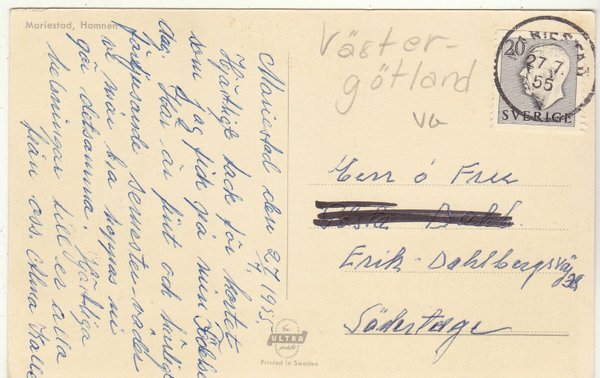 Mariestad, Hamnen
Mariestad den 27/7 1955.
Hjärtligt tack för kortet
som jag fick på min födelse
dag. Här är fint och härligt
förtjusande semester-väder
vi mår bra hoppas ni
gör detsamma. Hjärtliga
hälsningar till er alla
från oss. Anna
Väster-
götland
VG
MARIESTAD
27. 7.
55
20
SVERIGE
Herr o Fru
Erik-Dahlbergsväg
Södertälge
ULTRA
Printed in Sweden